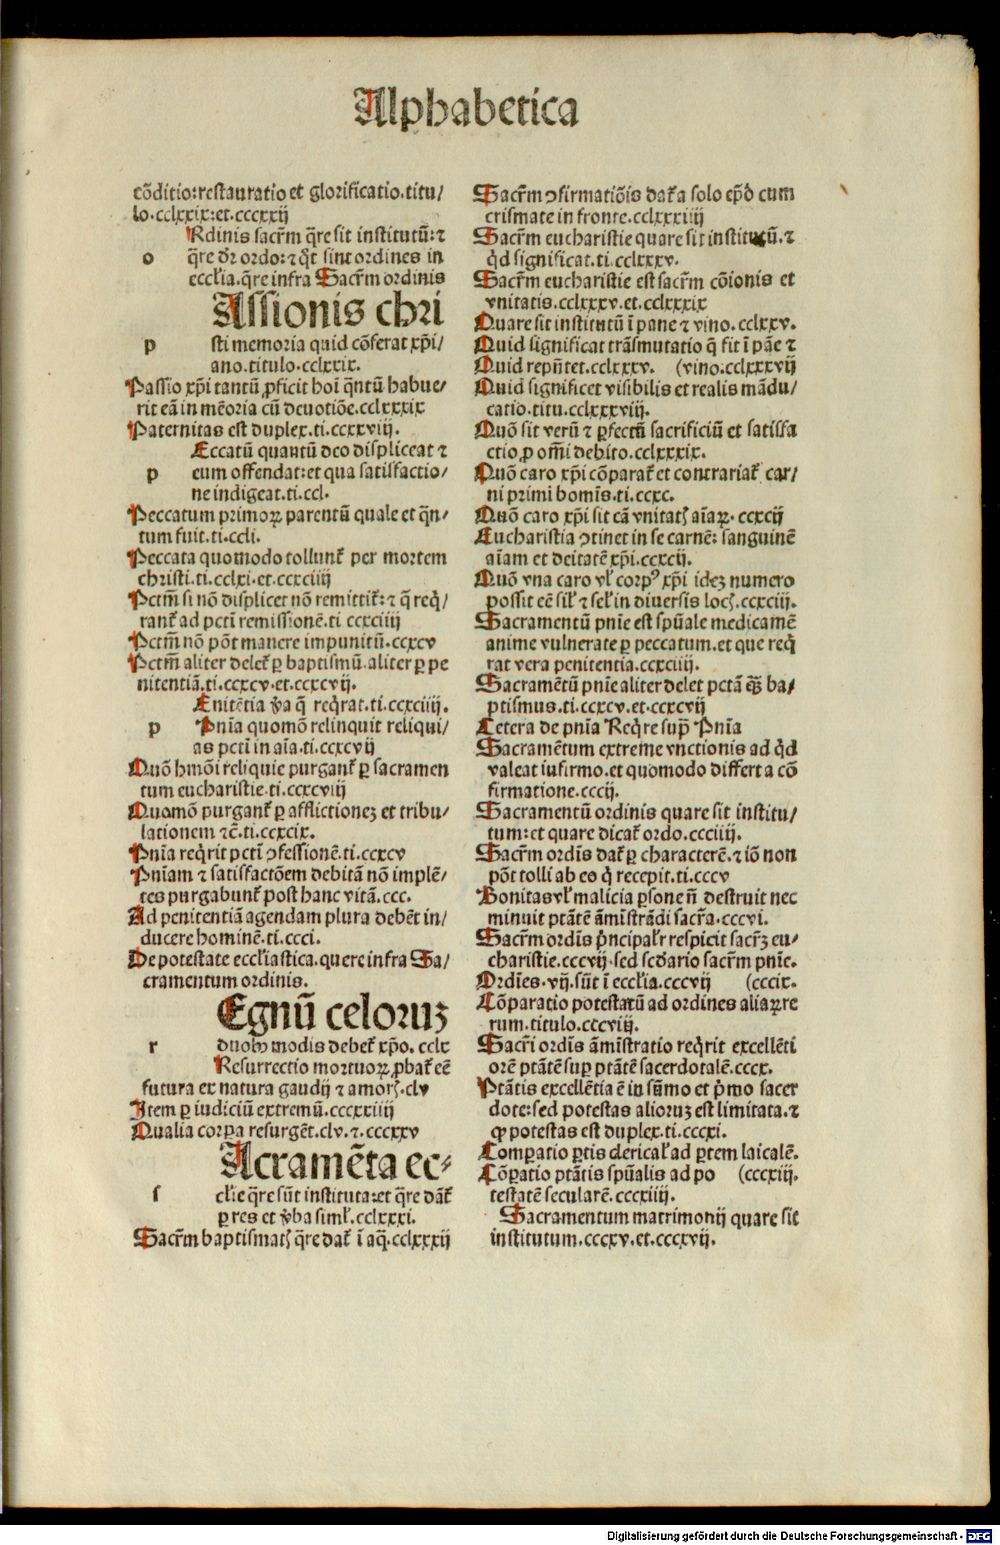 Alphabetica
cõditio:restauratio et glorificatio.titu/
lo.cclxxix:et.cccxxij
Rdinis sacr̃m q̃re sit institutũ:⁊
o q̃re dr̃ ordo:⁊ q̃t sint ordines in
eccľia.q̃re infra Sacr̃m ordinis
Assionis chri
p sti memoria quid cõferat xp̃i/
ano.titulo.cclxxix.
Passio xp̃i tantũ ꝓficit hoĩ q̃ntũ habue/
rit eã in mẽoria cũ deuotiõe.cclxxxix
Paternitas est duplex.ti.ccxxviij.
Eccatũ quantũ deo displiceat ⁊
p eum offendat:et qua satisfactio/
ne indigeat.ti.ccl.
Peccatum primoꝝ parentũ quale et q̃n/
tum fuit.ti.ccli.
Peccata quomodo tollunt᷑ per mortem
christi.ti.cclxi.et.ccxciiij
Pctm̃ si nõ displicet nõ remittit᷑:⁊ q̃ req̃/
rant᷑ ad pcti remissionẽ.ti ccxciiij
Pctm̃ nõ põt manere impunitũ.ccxcv
Pctm̃ aliter delet᷑ ꝑ baptismũ.aliter ꝑ pe
nitentiã.ti.ccxcv.et.ccxcvij.
Enitẽtia ṽa q̃ req̃rat.ti.ccxciiij.
p Pnĩa quomõ relinquit reliqui/
as pcti in aĩa.ti.ccxcvij
Quõ hmõi reliquie purgant᷑ ꝑ sacramen
tum eucharistie.ti.ccxcviij
Quomõ purgant᷑ ꝑ afflictionez et tribu/
lationem ⁊c̃.ti.ccxcix.
Pnĩa req̃rit pcti ꝯfessionẽ.ti.ccxcv
Pnĩam ⁊ satisfactõem debitã nõ implẽ/
tes purgabunt᷑ post hanc vitã.ccc.
Ad penitentiã agendam plura debẽt in/
ducere hominẽ.ti.ccci.
De potestate eccľiastica.quere infra Sa/
cramentum ordinis.
Egnũ celoruz
r duobꝰ modis debet᷑ xp̃o.cclx
Resurrectio mortuoꝝ ꝓbat᷑ eẽ
futura ex natura gaudij ⁊ amorꝭ.clv
Item ꝑ iudiciũ extremũ.cccxxiiij
Qualia corpa resurgẽt.clv.⁊.cccxxv
Acramẽta ec⸗
s cľie q̃re sũt instituta:et q̃re dãt᷑
ꝑ res et ṽba simľ.cclxxxi.
Sacr̃m baptismatꝭ q̃re dat᷑ ĩ aq̃.cclxxxij
Sacr̃m ꝯfirmatiõis dat᷑ a solo ep̃o cum
crismate in fronte.cclxxxiiij
Sacr̃m eucharistie quare sit institutũ.⁊
q̃d significat.ti.cclxxxv.
Sacr̃m eucharistie est sacr̃m cõionis et
vnitatis.cclxxxv.et.cclxxxix
Quare sit institutũ ĩ pane ⁊ vino.cclxxv.
Quid significat trãsmutatio q̃ fit ĩ pãe ⁊
Quid rep̃ntet.cclxxxv. (vino.cclxxxvij
Quid significet visibilis et realis mãdu/
catio.titu.cclxxxviij.
Quõ sit verũ ⁊ ꝑfectũ sacrificiũ et satisfa
ctio ꝓ om̃i debito.cclxxxix.
Quõ caro xp̃i cõparat᷑ et contrariat᷑ car/
ni primi homĩs.ti.ccxc.
Quõ caro xp̃i sit cã vnitatꝭ aĩaꝝ.ccxcij
Eucharistia ꝯtinet in se carnẽ: sanguinẽ
aĩam et deitatẽ xp̃i.ccxcij.
Quõ vna caro vľ corpꝰ xp̃i idez numero
possit eẽ siľ ⁊ seľ in diuersis locꝭ.ccxciij.
Sacramentũ pnĩe est spũale medicamẽ
anime vulnerate ꝑ peccatum.et que req̃
rat vera penitentia.ccxciiij.
Sacramẽtũ pnĩe aliter delet pctã q̃ꝫ ba/
ptismus.ti.ccxcv.et.ccxcvij
Cetera de pnĩa Req̃re sup̃ Pnĩa
Sacramẽtum extreme vnctionis ad q̃d
valeat iufirmo.et quomodo differt a cõ
firmatione.cccij.
Sacramentũ ordinis quare sit institu/
tum:et quare dicat᷑ ordo.ccciiij.
Sacr̃m ordĩs dat᷑ ꝑ characterẽ.⁊ iõ non
põt tolli ab eo q̃ recepit.ti.cccv
Bonitas vľ malicia ꝑsone ñ destruit nec
minuit ptãtẽ ãmĩstrãdi sacr̃a.cccvi.
Sacr̃m ordĩs p̃ncipaľr respicit sacr̃ꝫ eu/
charistie.cccvij.sed scďario sacr̃m pnĩe.
Ordĩes.vij.sũt ĩ eccľia.cccvij (cccix.
Cõparatio potestatũ ad ordines aliaꝝ re
rum.titulo.cccviij.
Sacr̃i ordĩs ãmĩstratio req̃rit excellẽti
orẽ ptãtẽ suꝑ ptãtẽ sacerdotalẽ.cccx.
Ptãtis excellẽtia ẽ in sũmo et p̃mo sacer
dote:sed potestas alioruz est limitata.⁊
ꝙ potestas est duplex.ti.cccxi.
Comꝑatio ꝑtis clericaľ ad ꝑtem laicalẽ.
Cõꝑatio ptãtis spũalis ad po (cccxiij.
testatẽ secularẽ.cccxiiij.
Sacramentum matrimonij quare sit
institutum.cccxv.et.cccxvij.
Digitalisierung gefördert durch die Deutsche Forschungsgemeinschaft - DFG